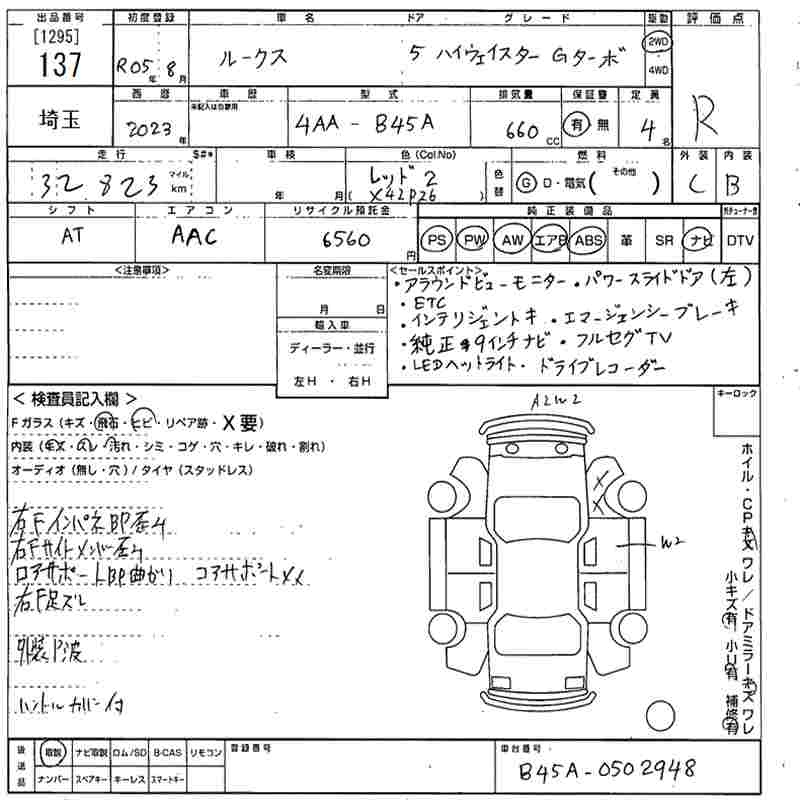 出品番号 初度登録 車名 ドア グレード 駆動 評価点
[1295]
137 R05年8月 ルークス 5 ハイウェイスター Gターボ 2WD 4WD R
埼玉 西暦 車歴 型式 排気量 保証書 定員
未記入は自家用
2023年 4AA - B45A 660cc 有・無 4名
走行 S#* 車検 色(Col.No) 燃料 外装 内装
32,823 マイル km 年 月 レッド2 (X42P26) 色替 G D・電気( その他 ) C B
シフト エアコン リサイクル預託金 純正装備品 社外チューナー無
AT AAC 6560円 PS PW AW エアB ABS 革 SR ナビ DTV
<注意事項> 名変期限 <セールスポイント>
・アラウンドビューモニター ・パワースライドドア(左)
月 日 ・ETC
輸入車 ・インテリジェントキー ・エマージェンシーブレーキ
ディーラー・並行 ・純正9インチナビ ・フルセグTV
左H・右H ・LEDヘッドライト ・ドライブレコーダー
<検査員記入欄> キーロック
Fガラス(キズ・飛石・ヒビ・リペア跡・X要)
内装(キズ・スレ・汚れ・シミ・コゲ・穴・キレ・破れ・割れ)
オーディオ(無し・穴)/タイヤ(スタッドレス)
A2W2
W2
右FインパネBP歪み
右Fサイドメンバー歪み
ロアサポートBP曲がり コアサポートXX
右F足ズレ
外装P波
ハンドルカバー付
ホイル・CPキズワレ/ドアミラーキズワレ
小キズ有 小U有 補修有
後送品 取説 ナビ取説 ロム/SD B-CAS リモコン 登録番号 車台番号
ナンバー スペアキー キーレス スマートキー B45A-0502948